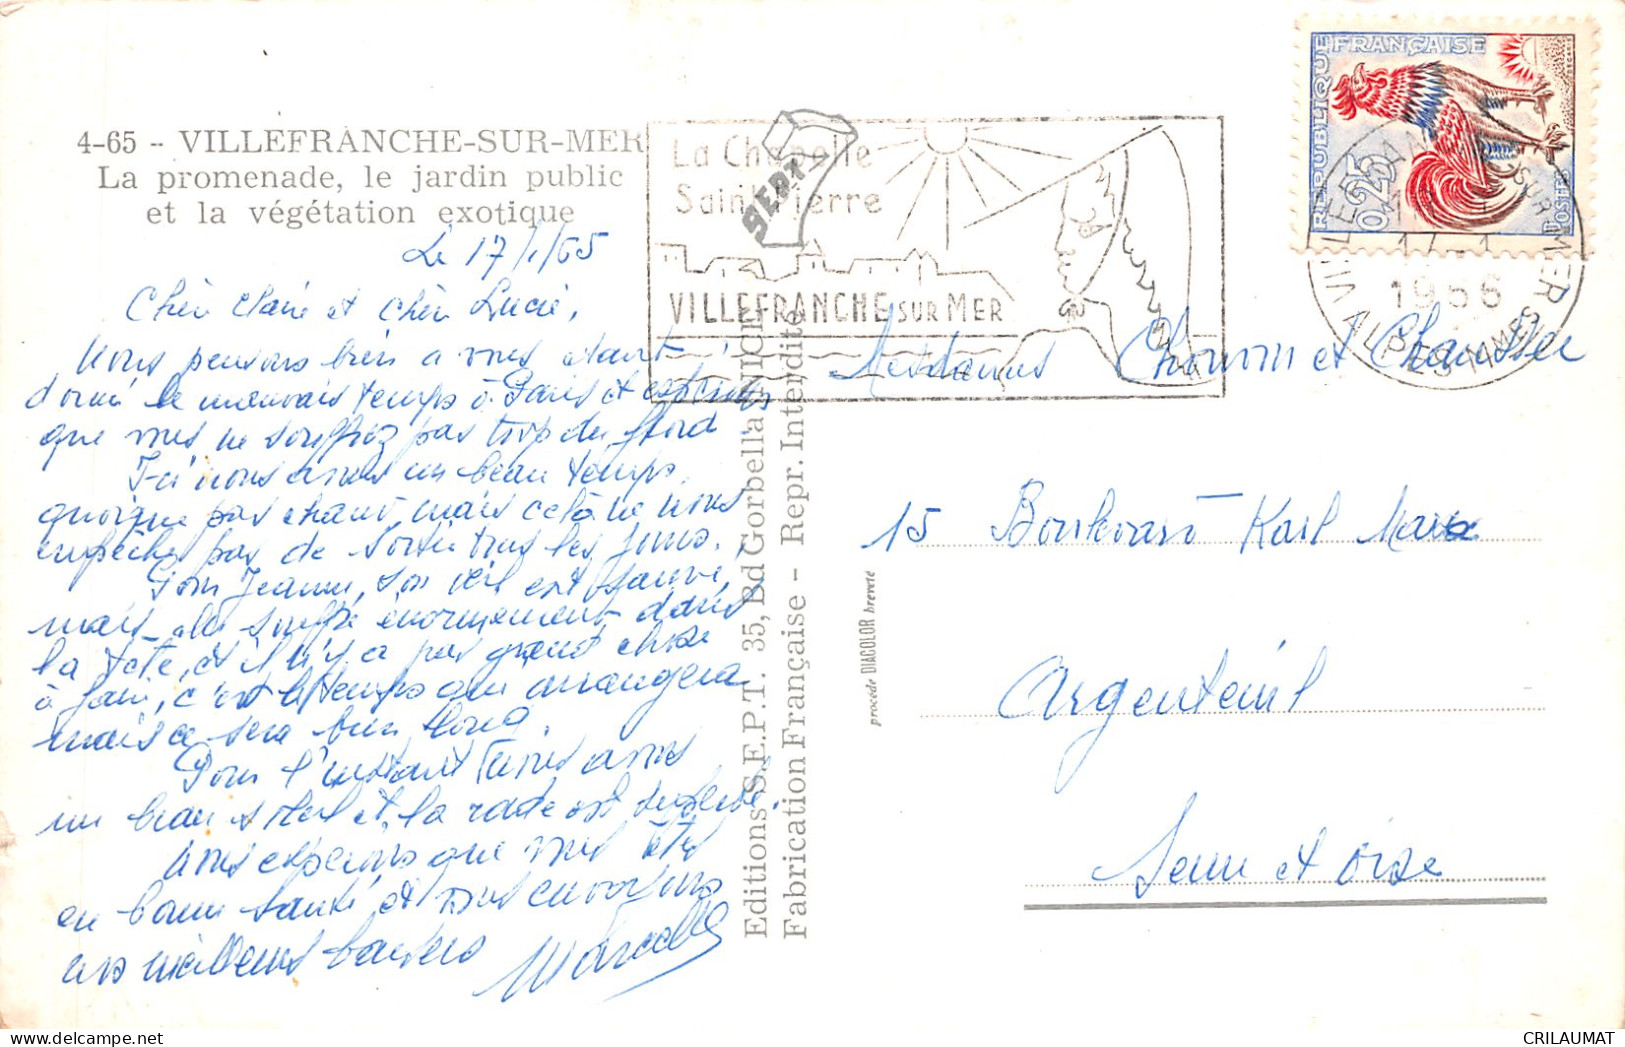 4-65 - VILLEFRANCHE-SUR-MER
La promenade, le jardin public
et la végétation exotique
Le 17/1/65
Chère Claire et chère Lucie,
Nous pensons bien à vous étant
donné le mauvais temps à Paris et espérons
que vous ne souffrez pas trop du froid
Ici nous avons un beau temps,
quoique pas chaud mais celà ne nous
empêche pas de sortir tous les jours.
Pour Jeanne, son œil est sauvé,
mais elle souffre énormément dans
la tête, et il n'y a pas grand chose
à faire, c'est le temps qui arrangera
mais ce sera bien long.
Pour l'instant nous avons
un beau soleil et la rade est superbe.
Nous espérons que vous êtes
en bonne santé et vous envoyons
nos meilleurs baisers Marcelle
Editions S.E.P.T. 35, Bd Gorbella NICE
Fabrication Française - Repr. Interdite
procédé DIACOLOR breveté
SEPT
La Chapelle
Saint Pierre
VILLEFRANCHE SUR MER
REPUBLIQUE FRANÇAISE
0,25
POSTES
VILLEFRANCHE SUR-MER
17-1
1956
ALPES MMES
Mesdames Chouvin et Chandelier
15 Boulevard Karl Marx
Argenteuil
Seine et Oise
CRILAUMAT